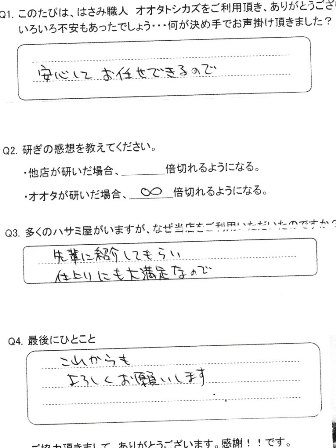 Q1. このたびは、はさみ職人 オオタトシカズをご利用頂き、ありがとうござ
いろいろ不安もあったでしょう・・・何が決め手でお声掛け頂きました?
安心してお任せできるので
Q2. 研ぎの感想を教えてください。
・他店が研いだ場合、______倍切れるようになる。
・オオタが研いだ場合、∞倍切れるようになる。
Q3. 多くのハサミ屋がいますが、なぜ当店をご利用いただいたのですか?
先輩に紹介してもらい
仕上りにも大満足なので
Q4. 最後にひとこと
これからも
よろしくお願いします
ご協力頂きまして、ありがとうございます。感謝!!です。